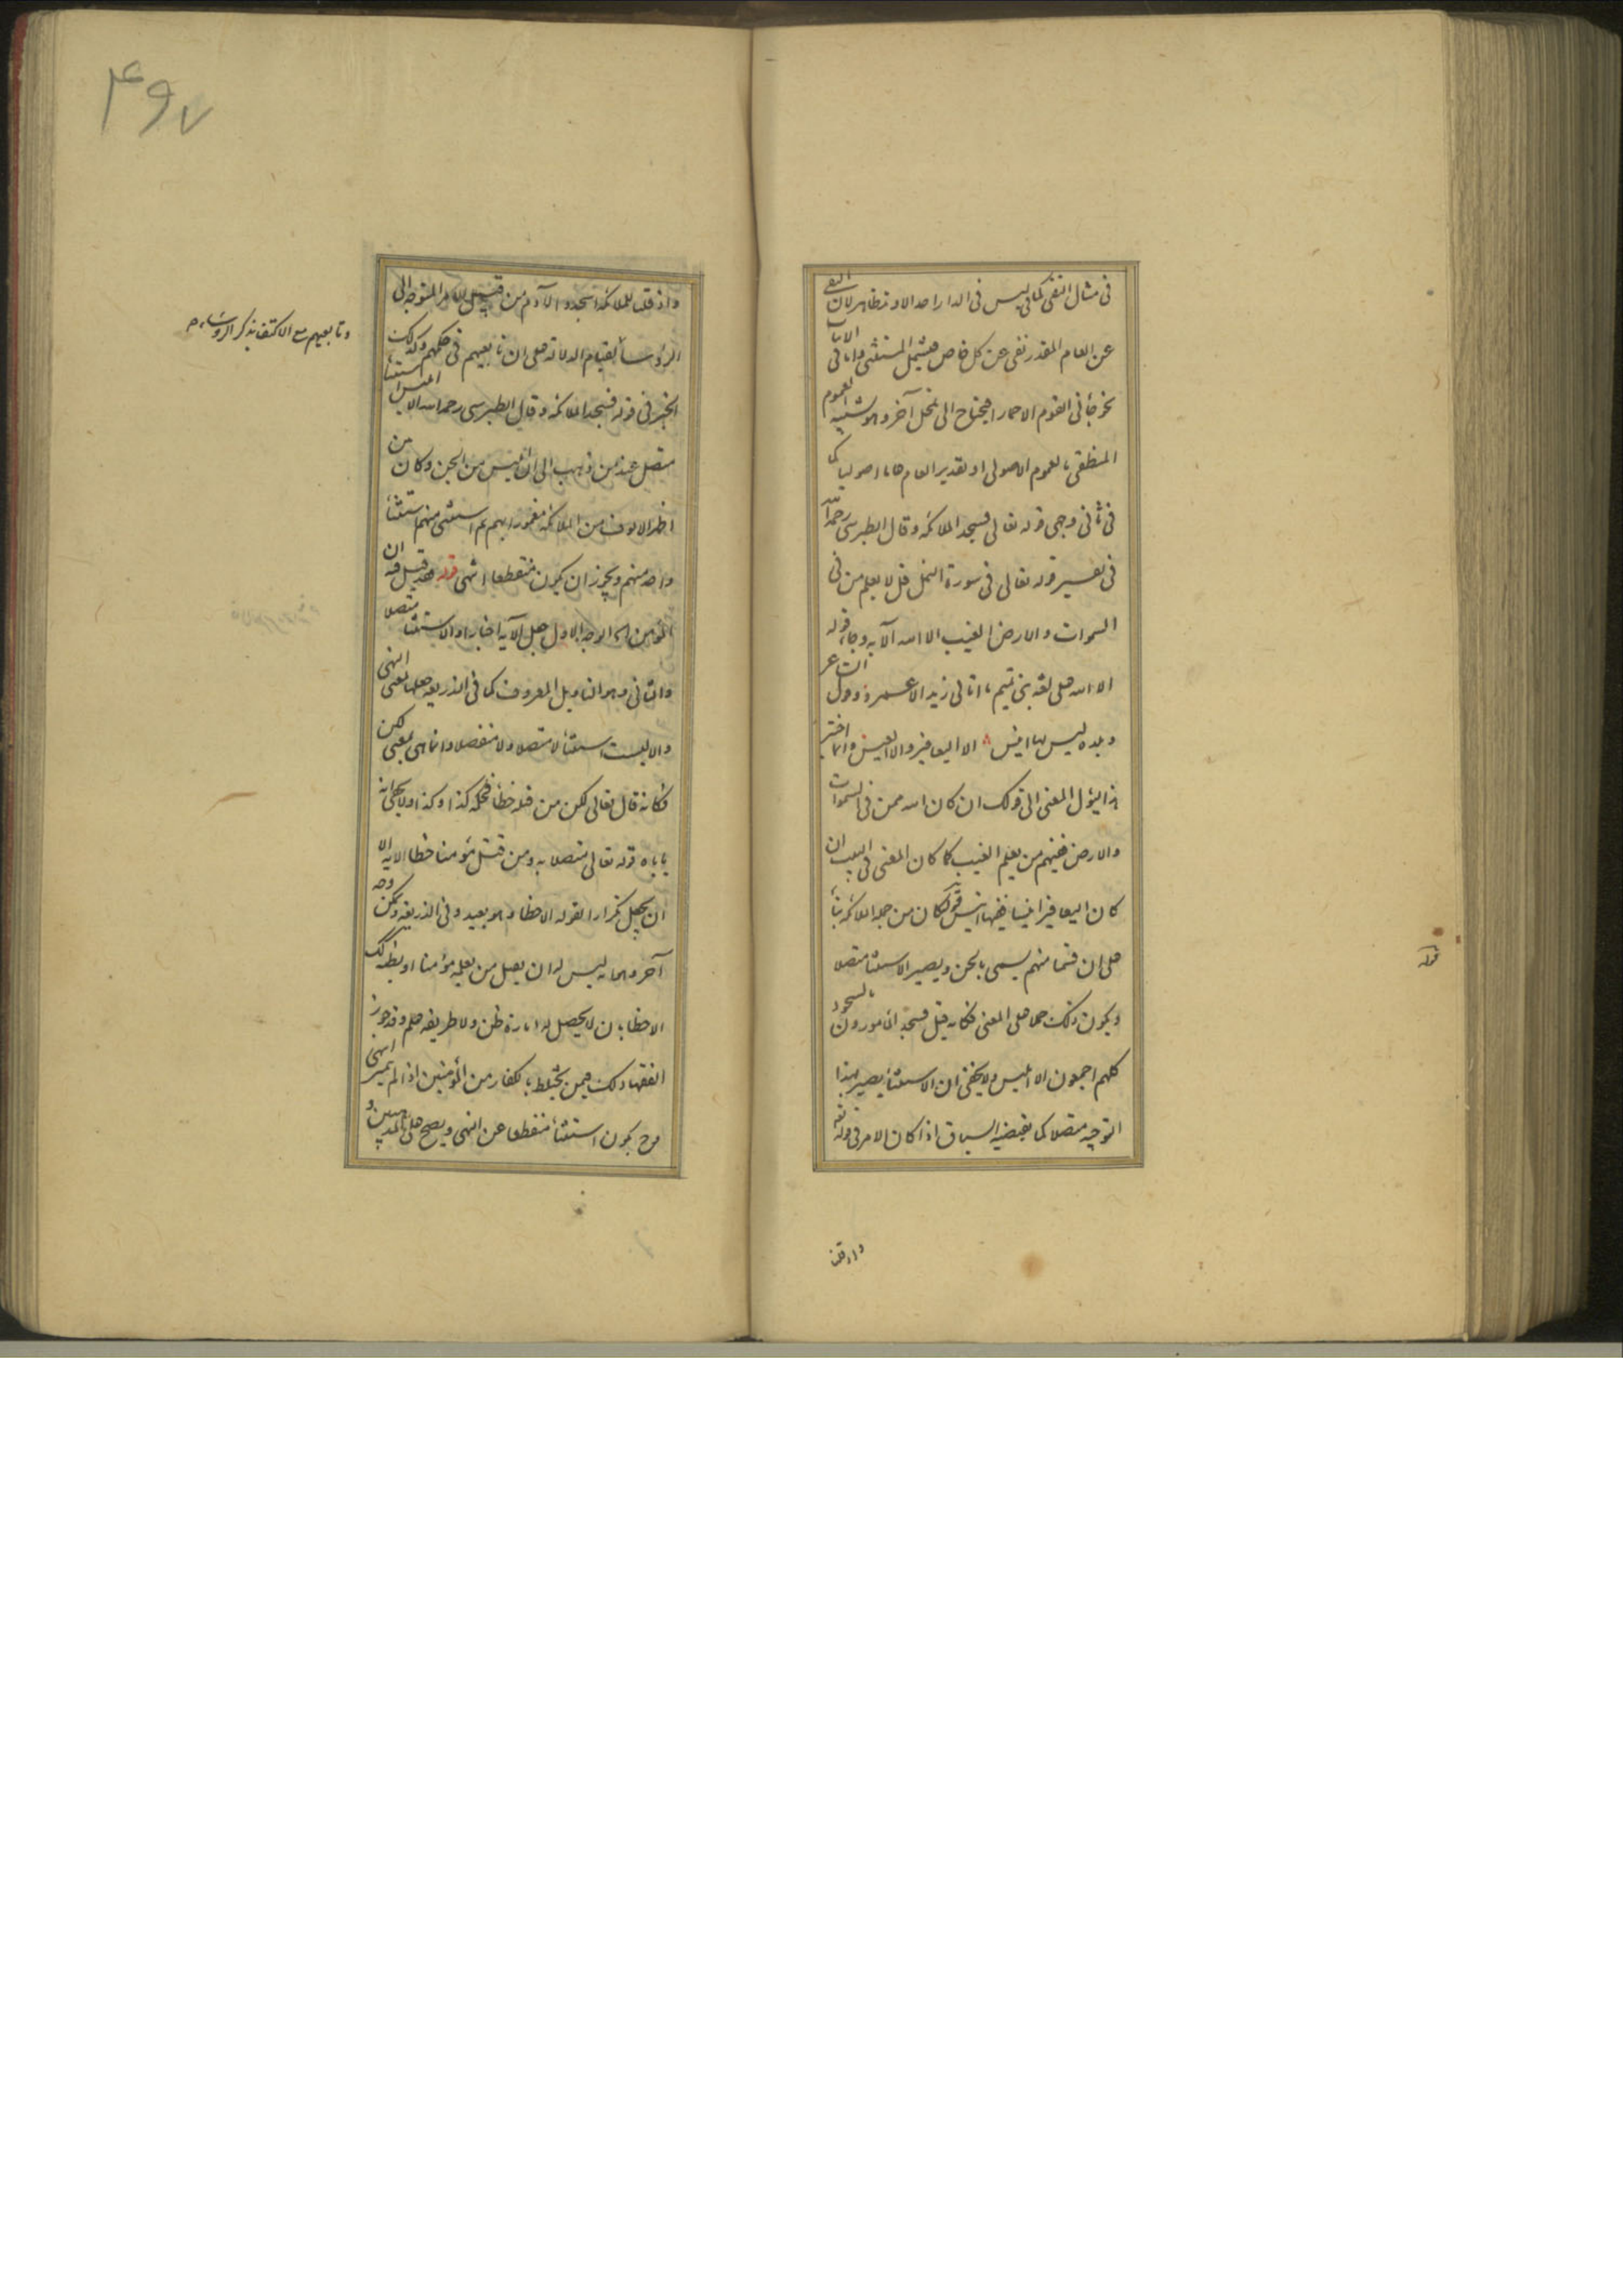 في مثال النفي كما في ليس في الدار احد الا وتد ظاهر لان النفي
عن العام المقدر نفي عن كل خاص فيشمل المستثنى واما في الاثبات
نحو جاءني القوم الا حمارا فيحتاج الى تمحل آخر وهو تشبيه العموم
المنطقي بالعموم الاصولي او تقدير العام عاما اصوليا كما
في ثاني وجهي قوله تعالى فسجد الملائكة وقال الطبرسي رحمه الله
في تفسير قوله تعالى في سورة النمل قل لا يعلم من في
السموات والارض الغيب الا الله الآية وجاء قوله
الا الله على لغة بني تميم ما اتاني زيد الا عمرو وقول الشاعر
وبلدة ليس بها انيس الا اليعافير والا العيس وانما اختير
هذا ليؤل المعنى الى قولك ان كان الله ممن في السموات
والارض ففيهم من يعلم الغيب كما كان المعنى في البيت ان
كان اليعافير انيسا ففيها انيس قوله كان من جملة الملائكة بناء
على ان قسما منهم يسمى بالجن ويصير الاستثناء متصلا
ويكون ذلك حملا على المعنى فكانه قيل فسجد المأمورون بالسجود
كلهم اجمعون الا ابليس ولا يخفى ان الاستثناء يصير بهذا
التوجيه متصلا كما يقتضيه السياق اذا كان الامر في قوله تعالى
واذ قلنا
قوله
۴۹۷
واذ قلنا للملائكة اسجدوا لآدم من قبيل الامر المتوجه الى
الرؤساء لقيام الدلالة على ان تابعيهم في حكمهم وكذلك
وتابعيهم مع الاكتفاء بذكر الرؤساء
الخبر في قوله فسجد الملائكة وقال الطبرسي رحمه الله الا ابليس استثناء
متصل عند من ذهب الى ان ابليس من الجن وكان من
اظهر الالوف من الملائكة مغمورا بهم ثم استثنى منهم استثناء
واحد منهم ويجوز ان يكون منقطعا انتهى قوله فقد قيل فيه ان
المؤمن الوجه الاول جعل الآية اخبارا والاستثناء متصلا
والثاني وهو التاويل المعروف كما في الذريعة جعلها بمعنى النهي
والا ليست استثناء لا متصلا ولا منفصلا وانما هي بمعنى لكن
فكانه قال تعالى لكن من قتله خطأ فحكمه كذا وكذا ولا يخفى انه
ياباه قوله تعالى متصلا به ومن قتل مؤمنا خطأ الآية الا
ان يجعل تكرارا لقوله الا خطأ وهو بعيد وفي الذريعة ويمكن وجه
آخر وهو انه ليس له ان يقتل من يعلمه مؤمنا او يظنه كذلك
الا خطأ بان لا يحصل له امارة ظن ولا طريقة علم وقد جوز
الفقهاء ذلك فيمن يختلط بالكفار من المؤمنين اذا لم يتميز انتهى
وح يكون استثناء منقطعا عن النهي ويصح على المذهبين و